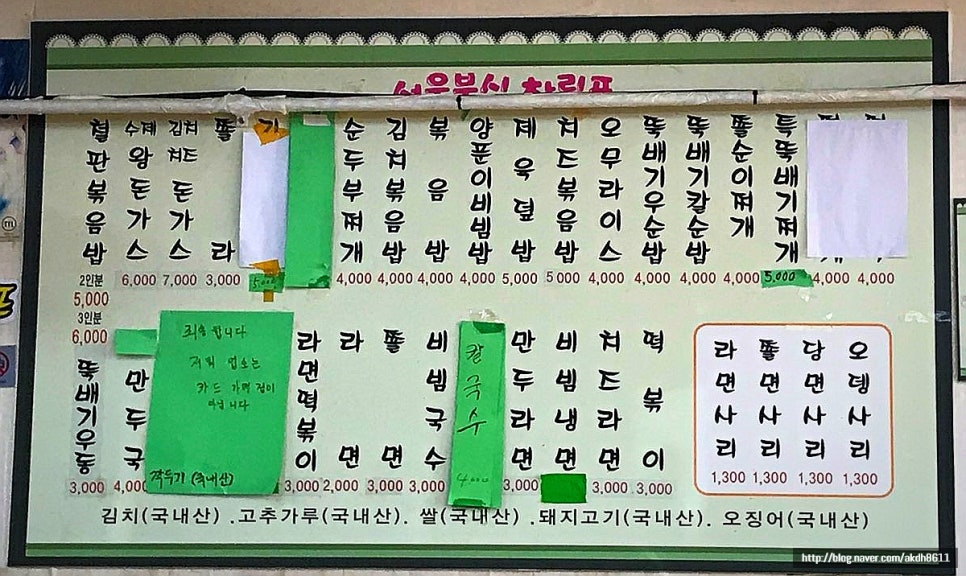 서울분식 차림표
철판볶음밥 2인분 5,000 3인분 6,000
수제왕돈가스 6,000
김치치즈돈가스 7,000
쫄라 3,000
5,000
순두부찌개 4,000
김치볶음밥 4,000
볶음밥 4,000
양푼이비빔밥 4,000
제육덮밥 5,000
치즈볶음밥 5,000
오무라이스 4,000
뚝배기우순밥 4,000
뚝배기칼순밥 4,000
쫄순이찌개 4,000
특뚝배기찌개 5,000
4,000
4,000
뚝배기우동 3,000
만두국 4,000
죄송합니다
저희 업소는
카드 가맹점이
아닙니다
깍두기 (국내산)
라면떡볶이 3,000
라면 2,000
쫄면 3,000
비빔국수 3,000
칼국수 4000
만두라면 3,000
비빔냉면
치즈라면 3,000
떡볶이 3,000
라면사리 1,300
쫄면사리 1,300
당면사리 1,300
오뎅사리 1,300
김치(국내산) .고추가루(국내산). 쌀(국내산) .돼지고기(국내산). 오징어(국내산)
http://blog.naver.com/akdh8611